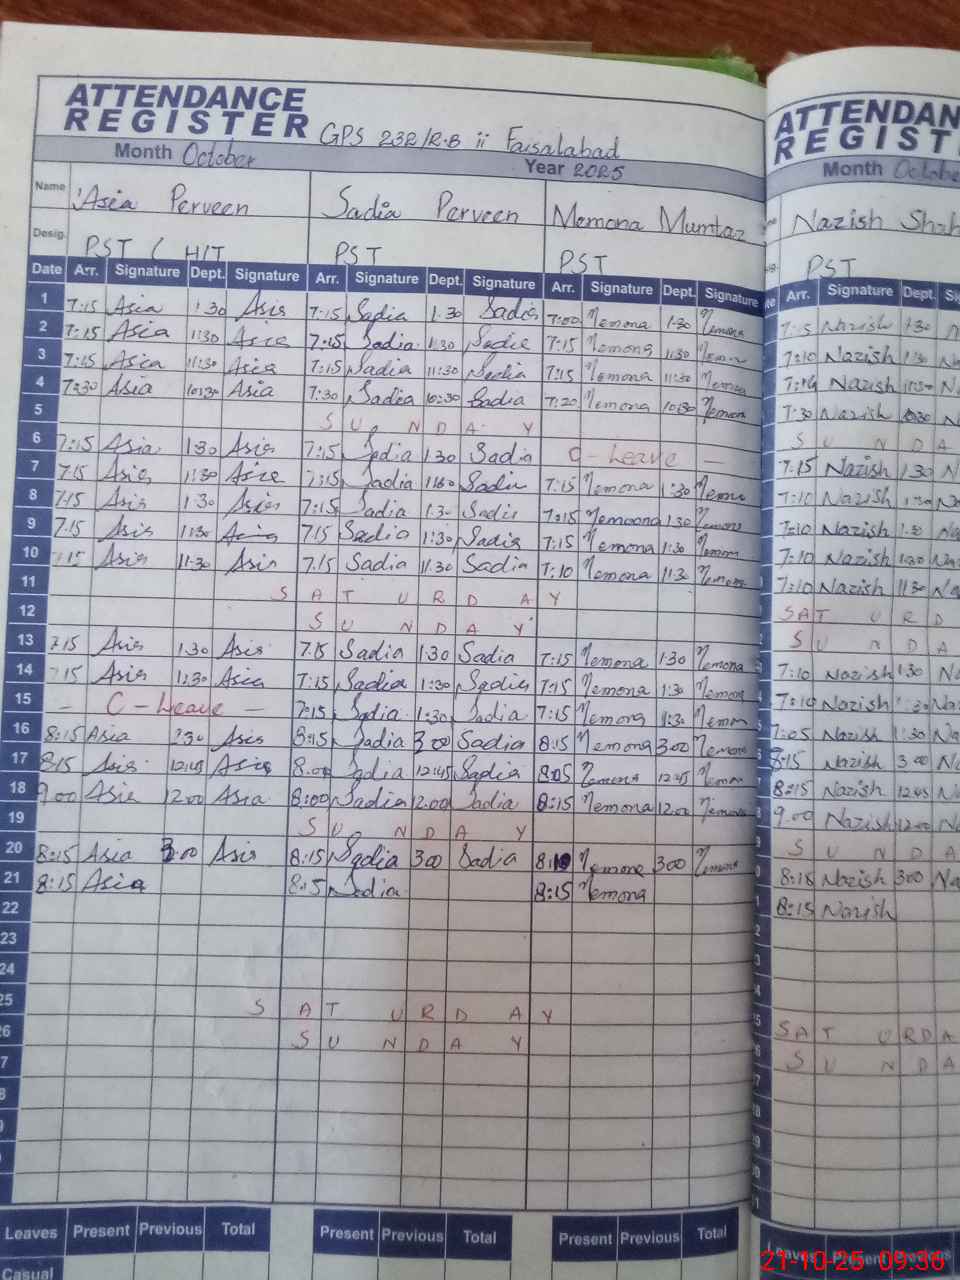 ATTENDANCE
REGISTER GPS 232/R.B ii Faisalabad
Month October Year 2025
Name Asia Perveen Sadia Perveen Memona Mumtaz
Desig. PST ( H/T PST PST
Date Arr. Signature Dept. Signature Arr. Signature Dept. Signature Arr. Signature Dept. Signature
1 7:15 Asia 1:30 Asia 7:15 Sadia 1:30 Sadia 7:00 Memona 1:30 Memona
2 7:15 Asia 11:30 Asia 7:15 Sadia 11:30 Sadia 7:15 Memona 11:30
3 7:15 Asia 11:30 Asia 7:15 Sadia 11:30 Sadia 7:15 Memona 11:30 Memona
4 7:30 Asia 10:30 Asia 7:30 Sadia 10:30 Sadia 7:20 Memona 10:30 Memona
5 SUNDAY
6 7:15 Asia 1:30 Asia 7:15 Sadia 1:30 Sadia C-Leave —
7 7:15 Asia 1:30 Asia 7:15 Sadia 1:30 Sadia 7:15 Memona 1:30
8 7:15 Asia 1:30 Asia 7:15 Sadia 1:30 Sadia 7:15 Memoona 1:30 Memona
9 7:15 Asia 1:30 Asia 7:15 Sadia 1:30 Sadia 7:15 Memona 1:30
10 7:15 Asia 11:30 Asia 7:15 Sadia 11:30 Sadia 7:10 Memona 11:30 Memona
11 SATURDAY
12 SUNDAY
13 7:15 Asia 1:30 Asia 7:15 Sadia 1:30 Sadia 7:15 Memona 1:30 Memona
14 7:15 Asia 1:30 Asia 7:15 Sadia 1:30 Sadia 7:15 Memona 1:30 Memona
15 — C-Leave — 7:15 Sadia 1:30 Sadia 7:15 Memona 1:30
16 8:15 Asia Asia 8:15 Sadia 3:00 Sadia 8:15 Memona 3:00 Memona
17 8:15 Asia 12:45 Asia 8:00 Sadia 12:45 Sadia 8:05 Memona 12:45
18 9:00 Asia 12:00 Asia 8:00 Sadia 12:00 Sadia 8:15 Memona 12:00 Memona
19 SUNDAY
20 8:15 Asia 3:00 Asia 8:15 Sadia 3:00 Sadia 8:10 Memona 3:00 Memona
21 8:15 Asia 8:15 Sadia 8:15 Memona
22
23
24
25 SATURDAY
26 SUNDAY
Leaves Present Previous Total Present Previous Total Present Previous Total
Casual
ATTENDAN
REGIST
Month October
Nazish Shah
PST
Arr. Signature Dept.
7:15 Nazish 1:30
7:10 Nazish 11:30
Nazish 11:30
7:30 Nazish 10:30
SUNDA
7:15 Nazish 1:30
7:10 Nazish
7:10 Nazish 1:30
7:10 Nazish 1:30
7:10 Nazish 11:30
SATURD
SUNDA
7:10 Nazish 1:30
7:10 Nazish 1:30
7:05 Nazish 1:30
8:15 Nazish 3:00
8:15 Nazish 12:45
9:00 Nazish 12:00
SUNDA
8:15 Nazish 3:00
8:15 Nazish
SATURDA
SUNDA
Leaves Present Previous
21-10-25 09:36